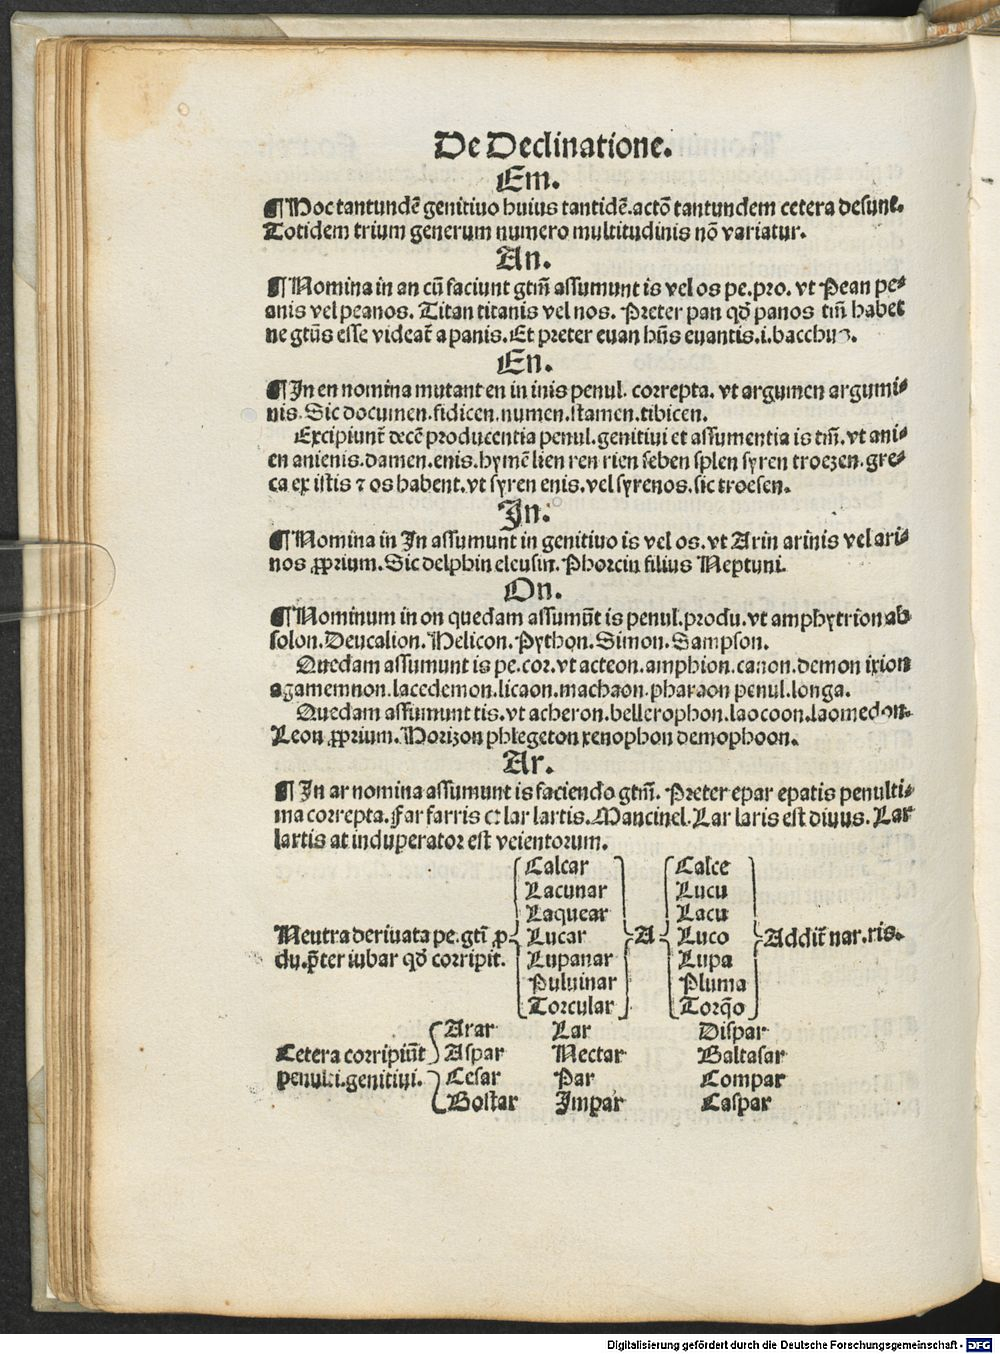 De Declinatione.
Em.
¶ Hoc tantundē genitiuo huius tantidē.actō tantundem cetera desunt.
Totidem trium generum numero multitudinis nō variatur.
An.
¶ Nomina in an cū faciunt gtm̄ assumunt is vel os pe.pro. vt Pean pe⸗
anis vel peanos. Titan titanis vel nos. Preter pan qđ panos tm̄ habet
ne gtūs esse videat̄ a panis. Et preter euan hn̄s euantis.i.bacchus.
En.
¶ In en nomina mutant en in inis penul. correpta. vt argumen argumi⸗
nis. Sic documen.fidicen.numen.stamen.tibicen.
Excipiunt̄ decē producentia penul.genitiui et assumentia is tm̄. vt ani⸗
en anienis.damen.enis.hymē lien ren rien seben splen syren troezen.gre⸗
ca ex istis ⁊ os habent.vt syren enis.vel syrenos.sic troesen.
In.
¶ Nomina in In assumunt in genitiuo is vel os. vt Arin arinis vel ari⸗
nos ꝓprium. Sic delphin eleusin. Phorcin filius Neptuni.
On.
¶ Nominum in on quedam assumūt is penul.produ.vt amphytrion ab
solon.Deucalion.Helicon.Python.Simon.Sampson.
Quedam assumunt is pe.cor.vt acteon.amphion.canon.demon ixion
agamemnon.lacedemon.licaon.machaon.pharaon penul.longa.
Quedam assumunt tis.vt acheron.bellerophon.laocoon.laomedon.
Leon ꝓprium.Horizon phlegeton xenophon demophoon.
Ar.
¶ In ar nomina assumunt is faciendo gtm̄. Preter epar epatis penulti⸗
ma correpta. Far farris et lar lartis. Mancinel. Lar laris est diuus. Lar
lartis at induperator est veientorum.
Calcar Calce
Lacunar Lucu
Laquear Lacu
Neutra deriuata pe.gtī ꝓ Lucar A Luco Addit̄ nar.ris.
du.p̄ter iubar qđ corripit. Lupanar Lupa
Puluinar Pluma
Torcular Torq̄o
Arar Lar Dispar
Cetera corripiūt Aspar Nectar Baltasar
penulti.genitiui. Cesar Par Compar
Bostar Impar Caspar
Digitalisierung gefördert durch die Deutsche Forschungsgemeinschaft - DFG